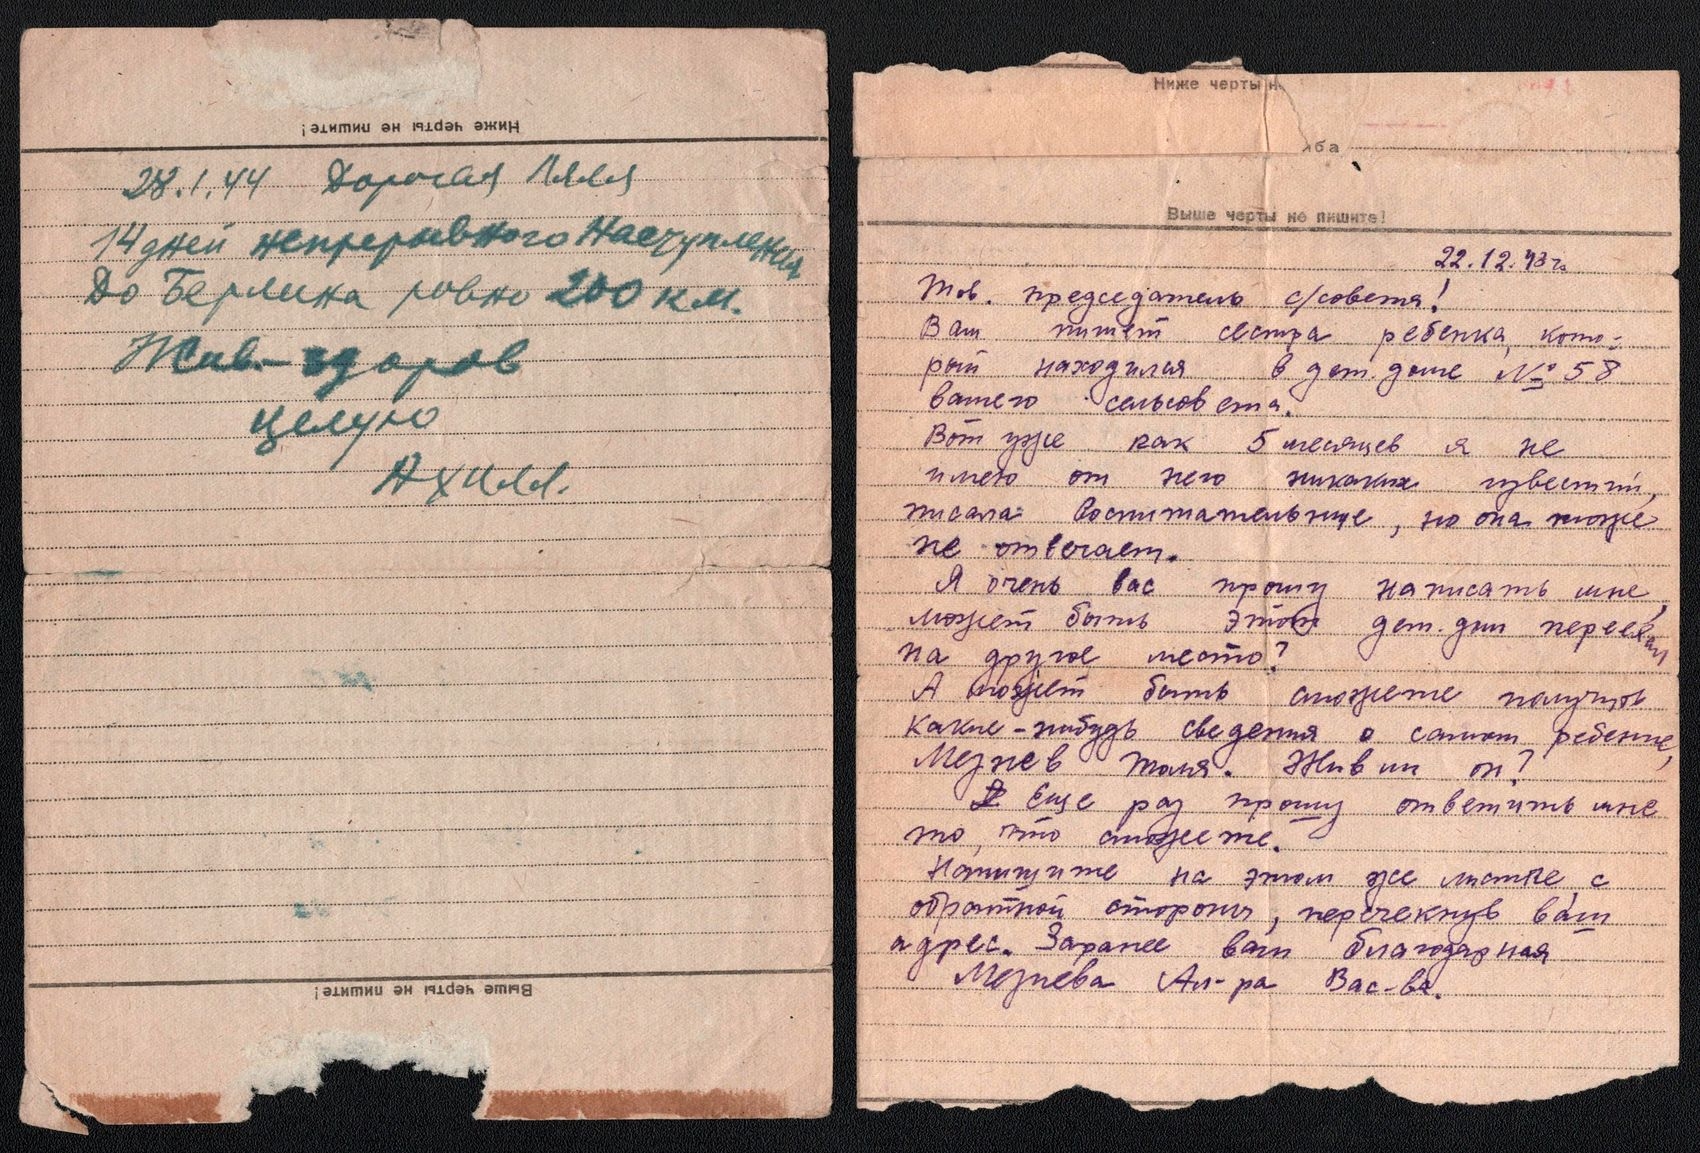 Ниже черты не пишите!
28.1.44 Дорогая Ляля
14 дней непрерывного наступления
До Берлина ровно 200 км.
Жив-здоров
целую
Ахилл.
Выше черты не пишите!
Ниже черты н
жба
Выше черты не пишите!
22.12.43 г.
Тов. председатель с/совета!
Вам пишет сестра ребенка, кото-
рый находился в дет. доме № 58
вашего сельсовета.
Вот уже как 5 месяцев я не
имею от него никаких известий,
писала воспитательнице, но она тоже
не отвечает.
Я очень вас прошу написать мне,
может быть этот дет. дом переехал
на другое место?
А может быть сможете получить
какие-нибудь сведения о самом ребенке,
Мезнев Толя. Жив ли он?
Еще раз прошу ответить мне
то, что сможете.
Напишите на этом же листке, с
обратной стороны, перечекнув ваш
адрес. Заранее вам благодарная
Мезнева Ал-ра Вас-ва.